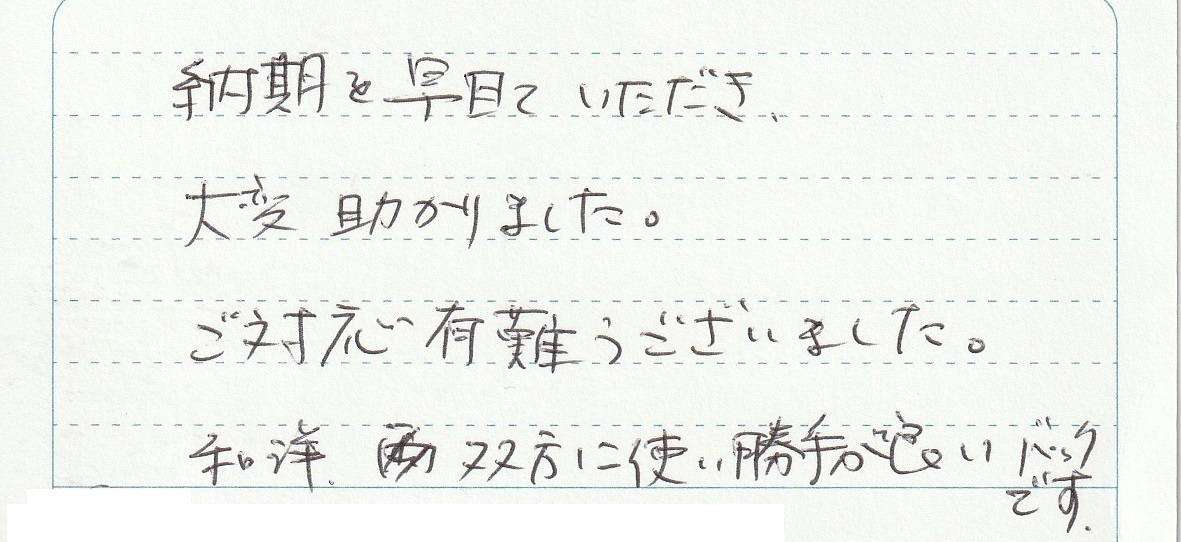 納期を早目ていただき、
大変助かりました。
ご対応有難うございました。
和洋、双方に使い勝手が良いバック
です.